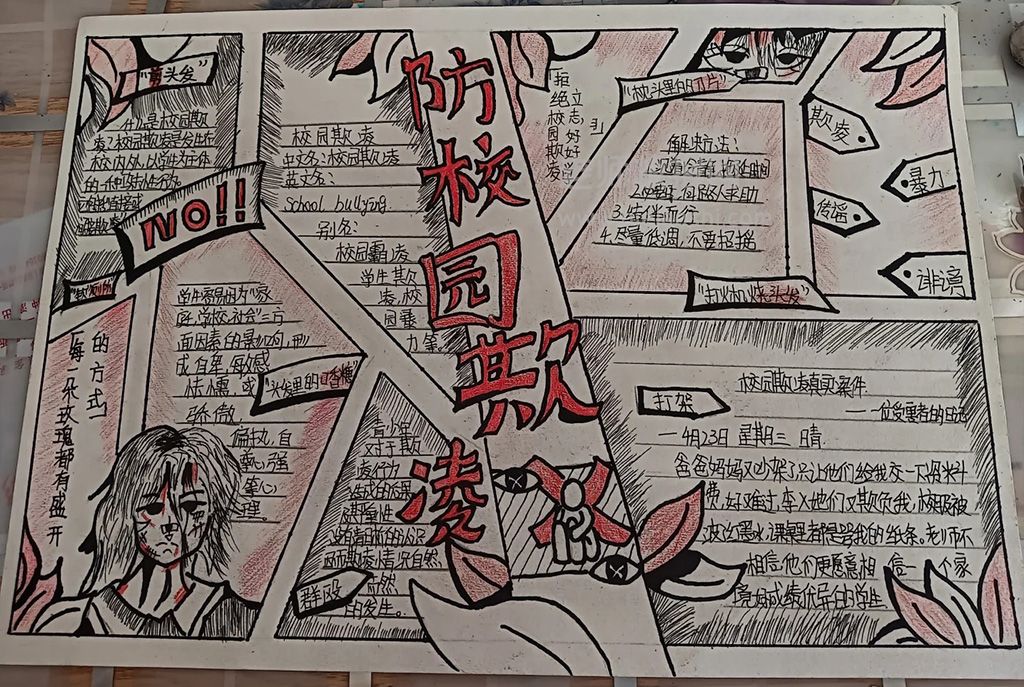 防校园欺凌
"剪头发"
什么是校园欺
凌?校园欺凌是发生在
校内外,以学生为主体
的一种攻击性行为。
NO!!
校园欺凌
中文名:校园欺凌
英文名:
School bullying
别名:
校园霸凌
学生欺
凌、校
园暴
力等
拒绝校园欺凌
立志好好学习
"枕头里的刀片"
解决方法:
2.必要时,向路人求助
3.结伴而行
4.尽量低调,不要招摇
欺凌
暴力
传谣
诽谤
"打火机烧头发"
每一朵玫瑰都有盛开
的方式
学生容易因为"家
庭,学校,社会"三方
面因素的暴力倾向,形
成自卑,敏感
怯懦,或
骄傲,
偏执,自
尊心强
等心
理。
"头发里的口香糖"
青少年
对于欺
凌行为
造成的后果
严重性
没有清晰的认识
从而欺凌情况自然
而然
的发生。
群殴
校园欺凌真实案件
——一位受害者的日记
打架
一 4月23日 星期三 晴
爸爸妈妈又吵架了,只让他们给我交一下资料
费,好难过,李X他们又欺负我,校服被
泼上墨水,课桌里都是骂我的纸条。老师不
相信他们更愿意相信一个家
境好成绩优异的学生